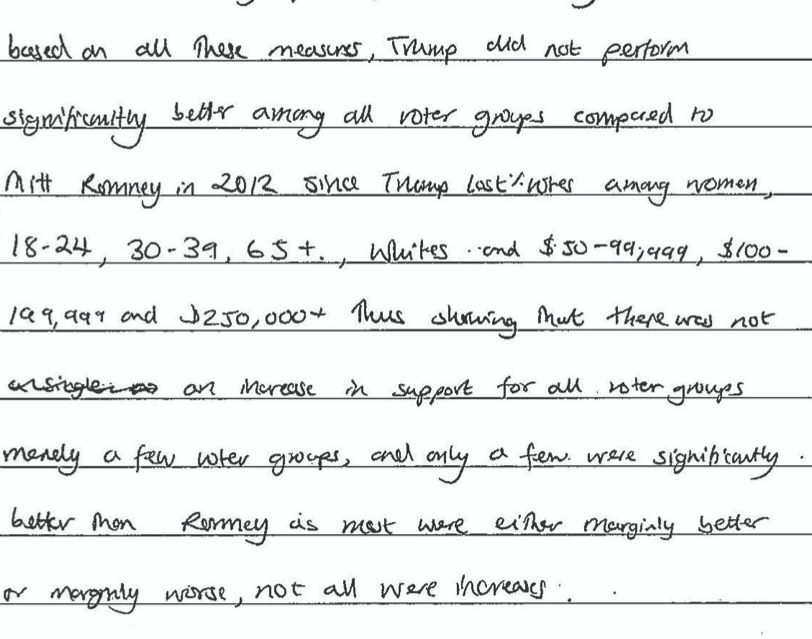 based on all these measures, Trump did not perform
significantly better among all voter groups compared to
Mitt Romney in 2012 since Trump lost % votes among women,
18-24, 30-39, 65+., Whites and $50-99,999, $100-
199,999 and $250,000+ Thus showing that there was not
an increase in support for all voter groups
merely a few voter groups, and only a few were significantly
better than Romney as most were either marginly better
or marginly worse, not all were increases.